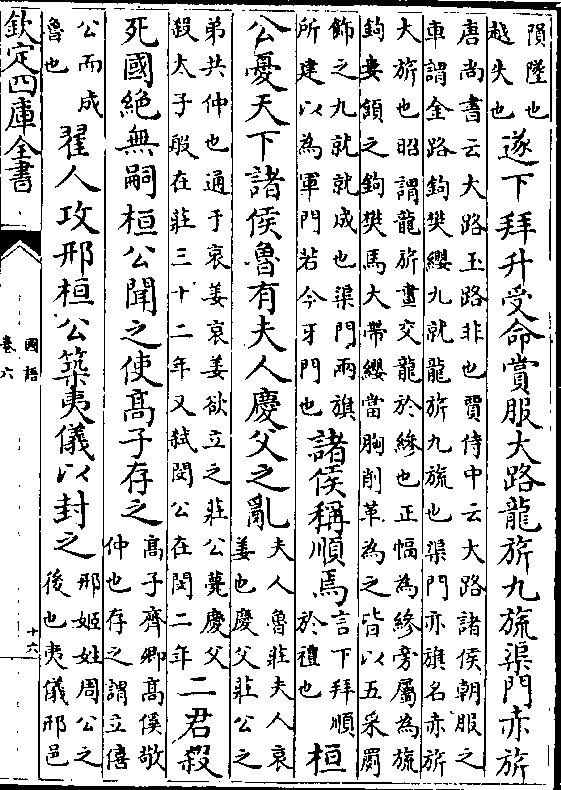 隕墜也
越失也
遂下拜升受命賞服大路龍旂九旒渠門赤旂
唐尚書云大路玉路非也賈侍中云大路諸侯朝服之
車謂金路鉤樊纓九就龍旂九旒也渠門亦旗名赤旂
大旂也昭謂龍旂畫交龍於縿也正幅為縿旁屬為旒
鉤婁頷之鉤樊馬大帶纓當胸削革為之皆以五采罽
飾之九就就成也渠門兩旗
所建以為軍門若今牙門也
諸侯稱順焉
言下拜順
於禮也
桓
公憂天下諸侯魯有夫人慶父之亂
夫人魯莊夫人哀
姜也慶父莊公之
弟共仲也通于哀姜哀姜欲立之莊公薨慶父
殺太子般在莊三十二年又弒閔公在閔二年
二君殺
死國絕無嗣桓公聞之使髙子存之
髙子齊卿髙傒敬
仲也存之謂立僖
公而成
魯也
翟人攻邢桓公築夷儀以封之
邢姬姓周公之
後也夷儀邢邑
欽定四庫全書
國語
卷六
十六